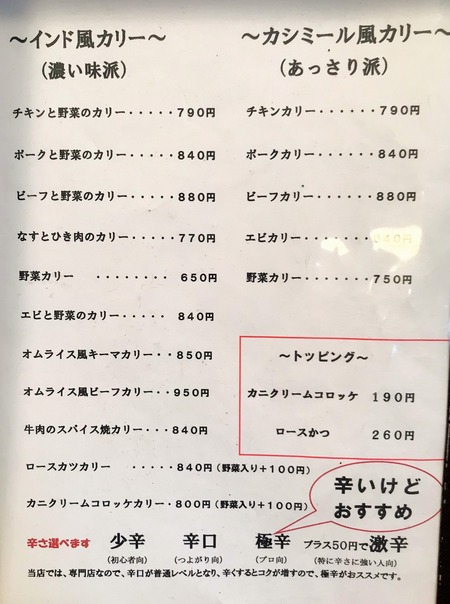 ～インド風カリー～
（濃い味派）
チキンと野菜のカリー・・・・・790円
ポークと野菜のカリー・・・・・840円
ビーフと野菜のカリー・・・・・880円
なすとひき肉のカリー・・・・・770円
野菜カリー　・・・・・・・・650円
エビと野菜のカリー・・・・・840円
オムライス風キーマカリー・・850円
オムライス風ビーフカリー・・950円
牛肉のスパイス焼カリー・・・840円
ロースカツカリー　・・・・・840円（野菜入り＋100円）
カニクリームコロッケカリー・800円（野菜入り＋100円）
～カシミール風カリー～
（あっさり派）
チキンカリー・・・・・・790円
ポークカリー・・・・・・840円
ビーフカリー・・・・・・880円
エビカリー・・・・・・・840円
野菜カリー・・・・・・・750円
～トッピング～
カニクリームコロッケ　190円
ロースかつ　260円
辛いけど
おすすめ
辛さ選べます　少辛　辛口　極辛　プラス50円で激辛
（初心者向）　（つよがり向）　（プロ向）　（特に辛さに強い人向）
当店では、専門店なので、辛口が普通レベルとなり、辛くするとコクが増すので、極辛がおススメです。